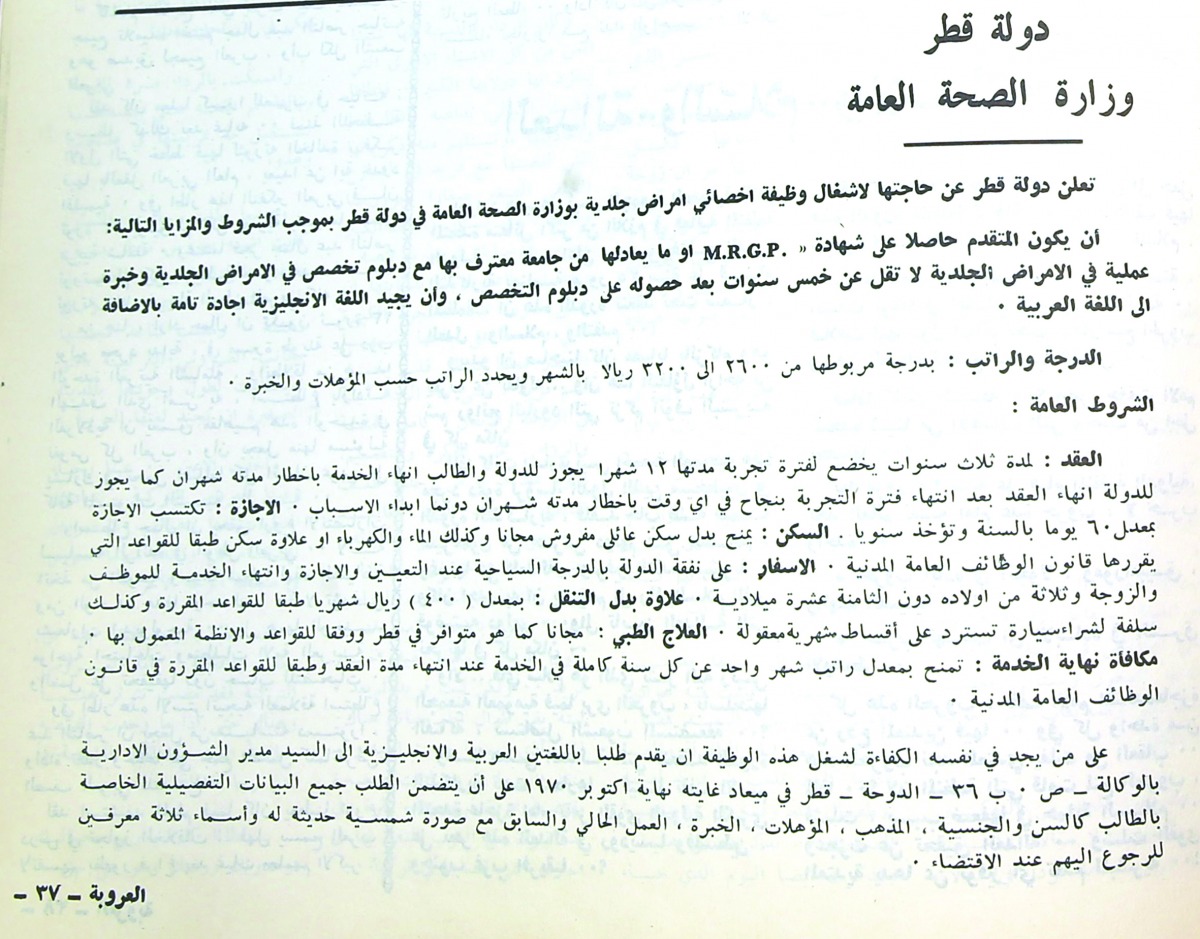 دولة قطر
وزارة الصحة العامة
تعلن دولة قطر عن حاجتها لاشغال وظيفة اخصائي امراض جلدية بوزارة الصحة العامة في دولة قطر بموجب الشروط والمزايا التالية:
أن يكون المتقدم حاصلا على شهادة « .M.R.G.P او ما يعادلها من جامعة معترف بها مع دبلوم تخصص في الامراض الجلدية وخبرة
عملية في الامراض الجلدية لا تقل عن خمس سنوات بعد حصوله على دبلوم التخصص ، وأن يجيد اللغة الانجليزية اجادة تامة بالاضافة
الى اللغة العربية ٠
الدرجة والراتب : بدرجة مربوطها من ٢٦٠٠ الى ٣٢٠٠ ريالا بالشهر ويحدد الراتب حسب المؤهلات والخبرة ٠
الشروط العامة :
العقد : لمدة ثلاث سنوات يخضع لفترة تجربة مدتها ١٢ شهرا يجوز للدولة والطالب انهاء الخدمة باخطار مدته شهران كما يجوز
للدولة انهاء العقد بعد انتهاء فترة التجربة بنجاح في اي وقت باخطار مدته شهران دونما ابداء الاسباب ٠ الاجازة : تكتسب الاجازة
بمعدل ٦٠ يوما بالسنة وتؤخذ سنويا . السكن : يمنح بدل سكن عائلى مفروش مجانا وكذلك الماء والكهرباء او علاوة سكن طبقا للقواعد التي
يقررها قانون الوظائف العامة المدنية ٠ الاسفار : على نفقة الدولة بالدرجة السياحية عند التعيين والاجازة وانتهاء الخدمة للموظف
والزوجة وثلاثة من اولاده دون الثامنة عشرة ميلادية ٠ علاوة بدل التنقل : بمعدل (٤٠٠) ريال شهريا طبقا للقواعد المقررة وكذلك
سلفة لشراء سيارة تسترد على أقساط شهرية معقولة ٠ العلاج الطبي : مجانا كما هو متوافر في قطر ووفقا للقواعد والانظمة المعمول بها ٠
مكافأة نهاية الخدمة : تمنح بمعدل راتب شهر واحد عن كل سنة كاملة في الخدمة عند انتهاء مدة العقد وطبقا للقواعد المقررة في قانون
الوظائف العامة المدنية ٠
على من يجد في نفسه الكفاءة لشغل هذه الوظيفة ان يقدم طلبا باللغتين العربية والانجليزية الى السيد مدير الشؤون الادارية
بالوكالة – ص ٠ ب ٣٦ – الدوحة – قطر في ميعاد غايته نهاية اكتوبر ١٩٧٠ على أن يتضمن الطلب جميع البيانات التفصيلية الخاصة
بالطالب كالسن والجنسية ، المذهب ، المؤهلات ، الخبرة ، العمل الحالي والسابق مع صورة شمسية حديثة له وأسماء ثلاثة معرفين
للرجوع اليهم عند الاقتضاء ٠
العروبة – ٣٧ –